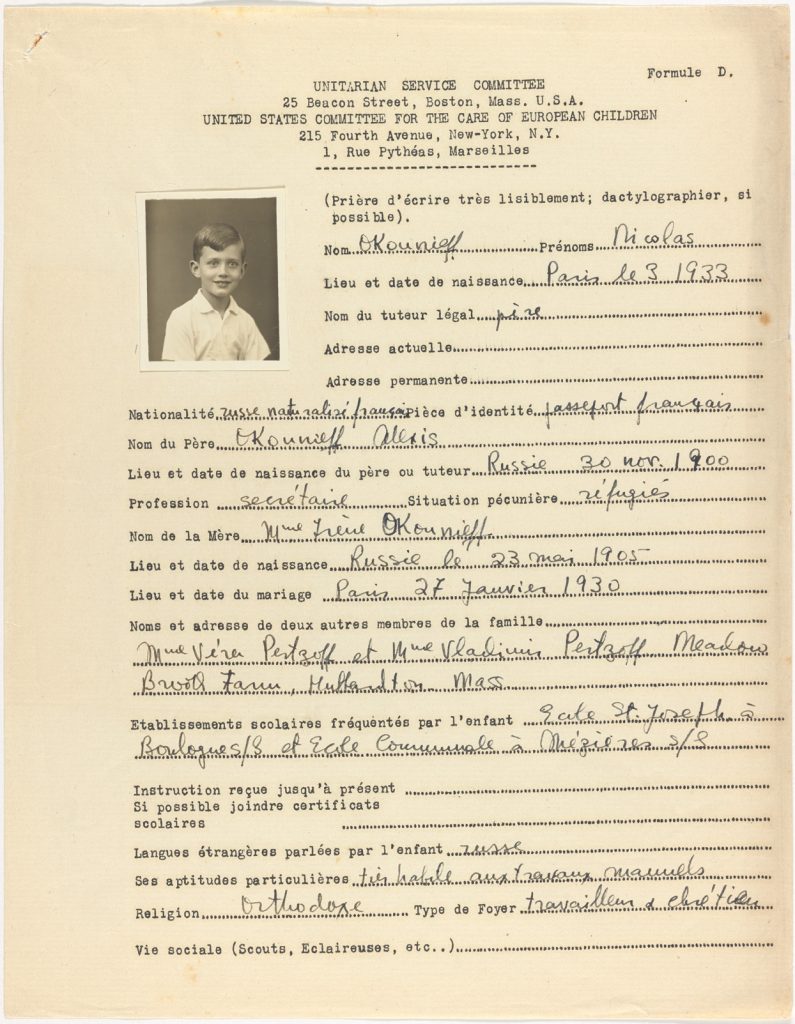 Formule D.
UNITARIAN SERVICE COMMITTEE
25 Beacon Street, Boston, Mass. U.S.A.
UNITED STATES COMMITTEE FOR THE CARE OF EUROPEAN CHILDREN
215 Fourth Avenue, New-York, N.Y.
1, Rue Pythéas, Marseilles
(Prière d'écrire très lisiblement; dactylographier, si
possible).
Nom OKounieff Prénoms Nicolas
Lieu et date de naissance Paris le 3 1933
Nom du tuteur légal père
Adresse actuelle
Adresse permanente
Nationalité russe naturalisé français pièce d'identité passeport français
Nom du Père OKounieff Alexis
Lieu et date de naissance du père ou tuteur Russie 30 nov. 1900
Profession secrétaire Situation pécunière réfugiés
Nom de la Mère Mme Irène OKounieff
Lieu et date de naissance Russie le 23 mai 1905
Lieu et date du mariage Paris 27 Janvier 1930
Noms et adresse de deux autres membres de la famille
Mme Véra Pertzoff et Mme Vladimir Pertzoff Meadow
Brook Farm, Mass
Etablissements scolaires fréquentés par l'enfant Ecole St. Joseph à
Boulogne s/S et Ecole Communale à Mézières s/S
Instruction reçue jusqu'à présent
Si possible joindre certificats
scolaires
Langues étrangères parlées par l'enfant russe
Ses aptitudes particulières très habile aux travaux manuels
Religion Orthodoxe Type de Foyer travailleur & chrétien
Vie sociale (Scouts, Eclaireuses, etc..)